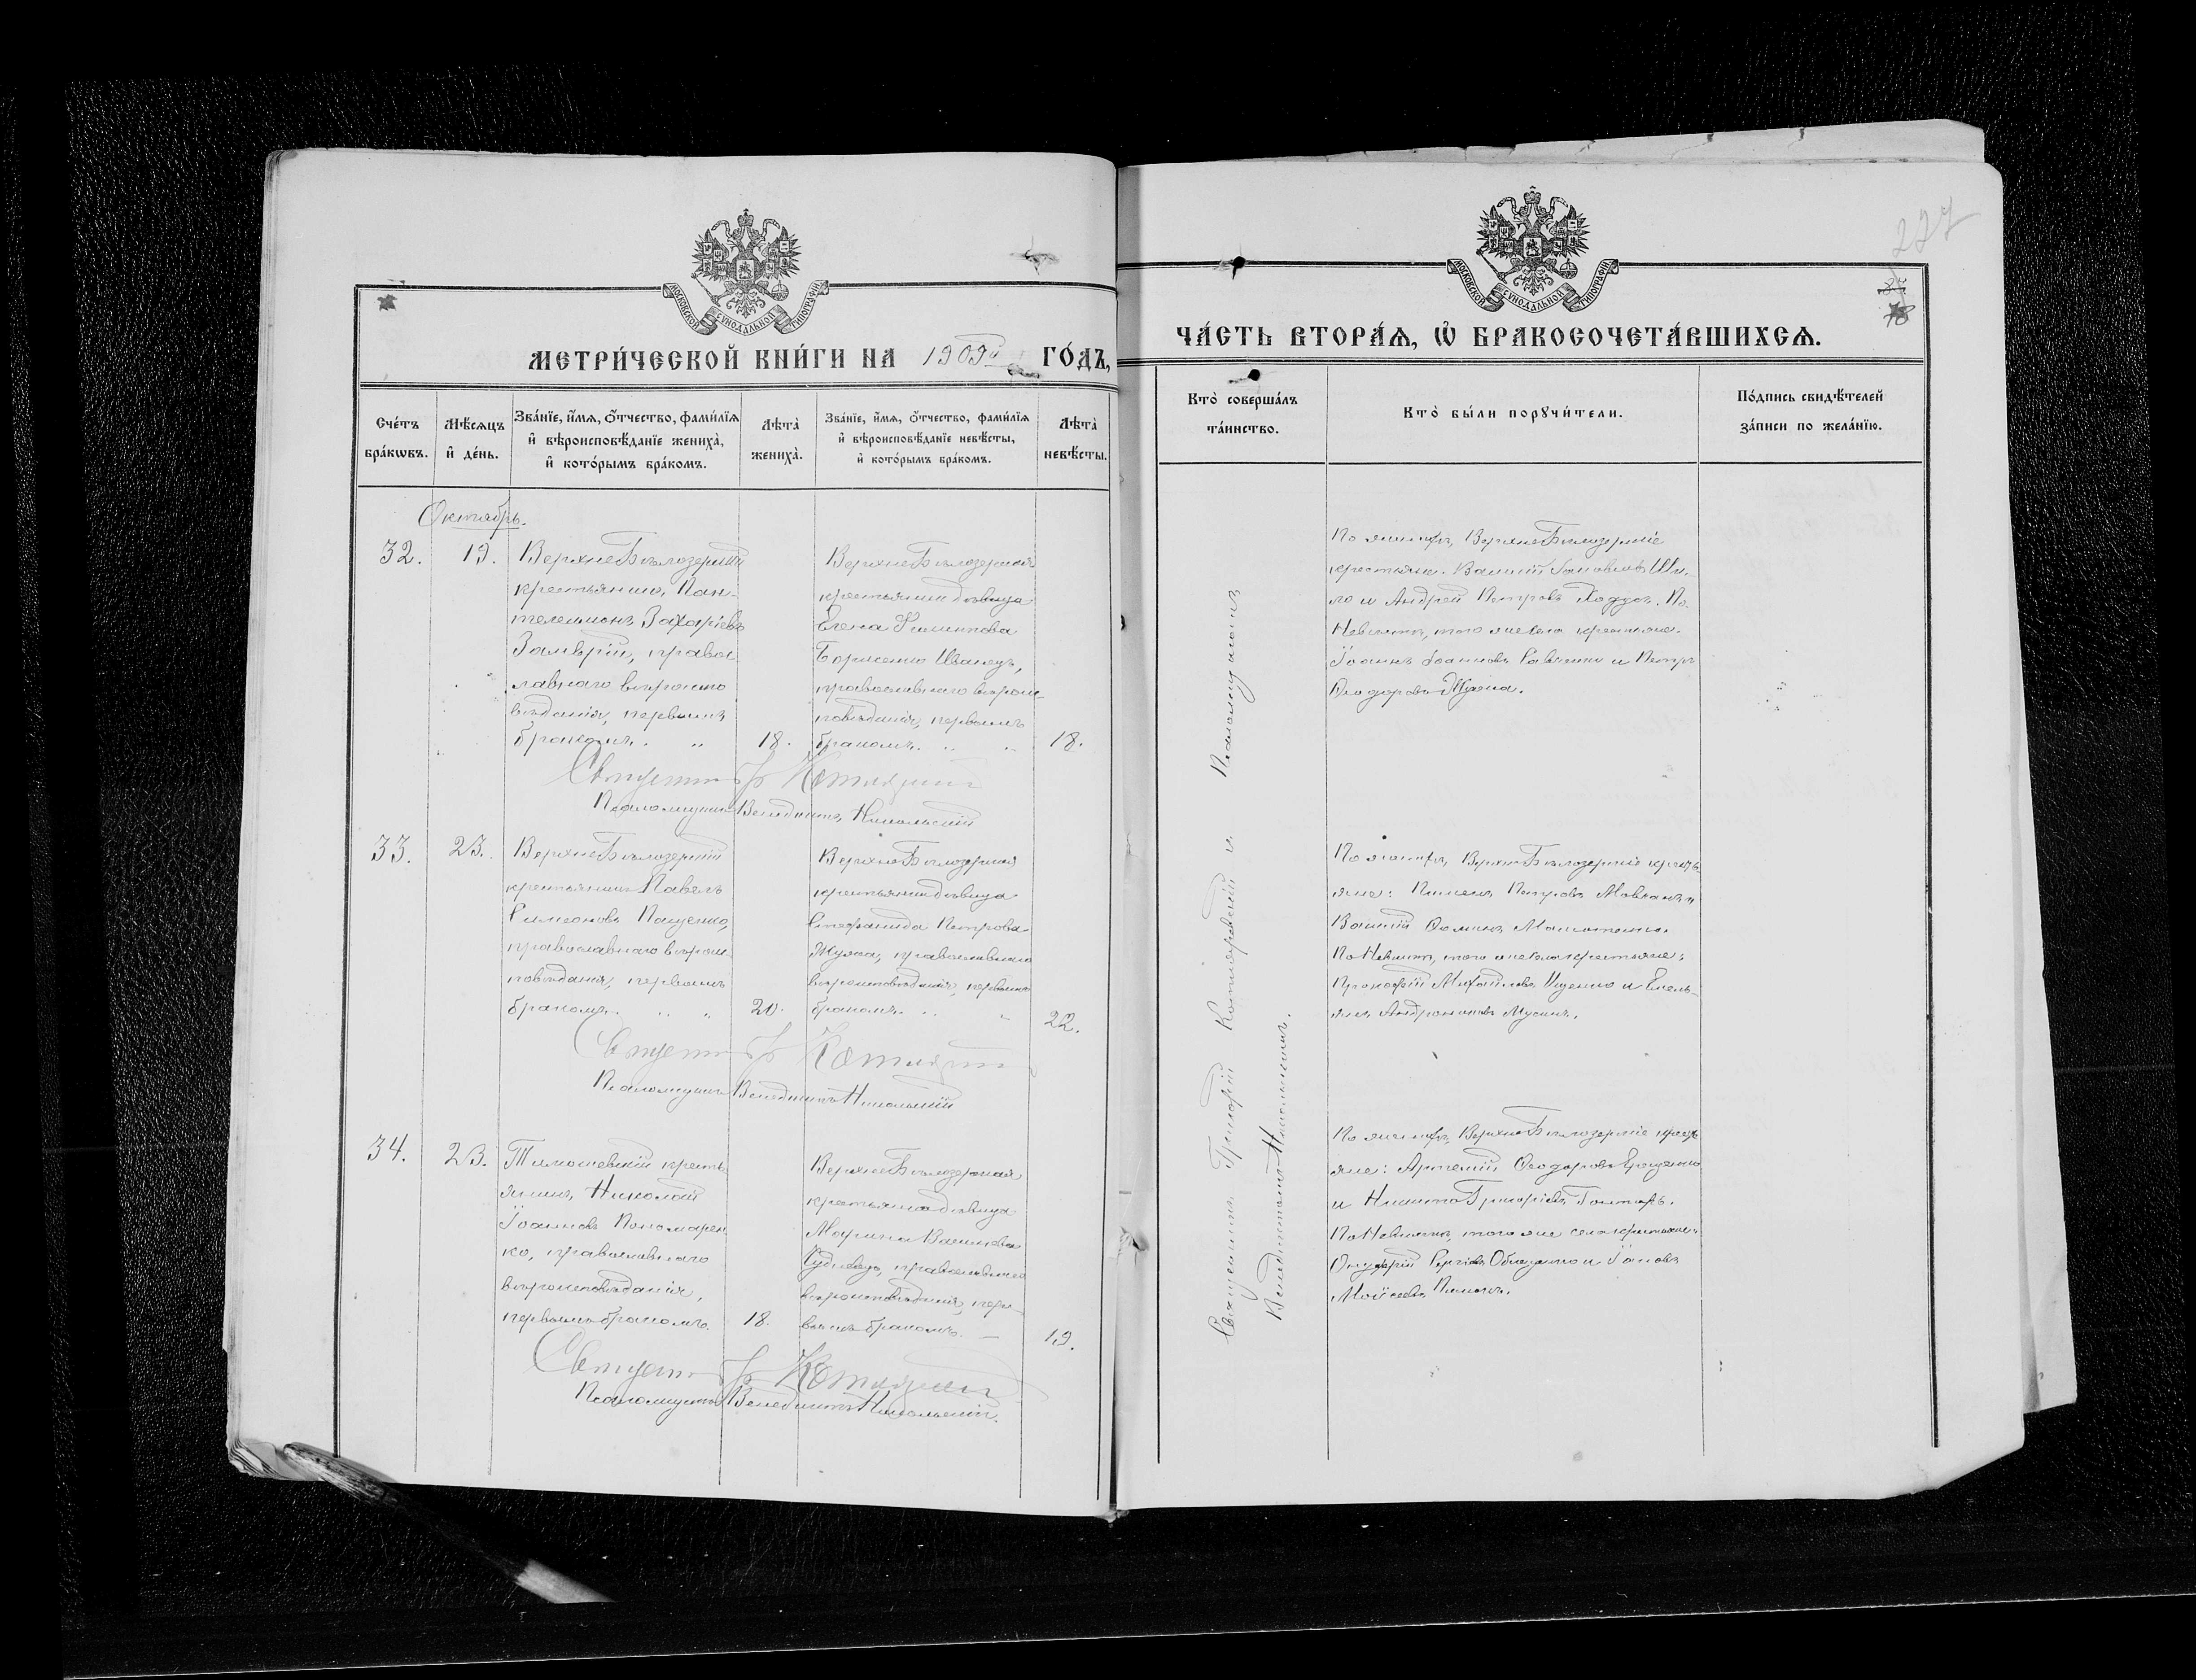 МОСКОВСКОЙ СѴНОДАЛЬНОЙ ТИПОГРАФІИ
МЕТРИ́ЧЕСКОЙ КНИ́ГИ НА 1909й ГО́ДЪ,
Сче́тъ бра́кωвъ.
Мѣ́сѧцъ и҆ де́нь.
Зва́нїе, и҆́мѧ, ѻ҆́тчество, фами́лїѧ
и҆ вѣроисповѣ́данїе жениха̀,
и҆ кото́рымъ бра́комъ.
Лѣ́та̀ жениха̀.
Зва́нїе, и҆́мѧ, ѻ҆́тчество, фами́лїѧ
и҆ вѣроисповѣ́данїе невѣ́сты,
и҆ кото́рымъ бра́комъ.
Лѣ́та̀ невѣ́сты.
Октябрь.
32.
19.
ВерхнеБѣлозерскій
крестьянинъ Пан-
телеимонъ Захаріевъ
Замврій, правос
лавнаго вѣроиспо
вѣданія, первымъ
бракомъ.
18.
ВерхнеБѣлозерская
крестьянка дѣвица
Елена Филиппова
Борисенко Иванецъ,
православнаго вѣроис-
повѣданія, первымъ
бракомъ.
18.
Священникъ Гр Котляревскій
Псаломщикъ Венедиктъ Никольскій
33.
23.
ВерхнеБѣлозерскій
крестьянинъ Павелъ
Симеоновъ Пащенко,
православнаго вѣроис
повѣданія, первымъ
бракомъ.
20.
ВерхнеБѣлозерская
крестьянка дѣвица
Стефанида Петрова
Жукова, православнаго
вѣроисповѣданія, первымъ
бракомъ.
22.
Священникъ Гр Котляревскій
Псаломщикъ Венедиктъ Никольскій
34.
23.
Тимошевскій кресть
янинъ Николай
Іоанновъ Пономарен
ко, православнаго
вѣроисповѣданія,
первымъ бракомъ.
18.
ВерхнеБѣлозерская
крестьянка дѣвица
Марина Василіева
православнаго
вѣроисповѣданія, пер
вымъ бракомъ.
19.
Священникъ Гр Котляревскій
Псаломщикъ Венедиктъ Никольскій.
227
78
МОСКОВСКОЙ СѴНОДАЛЬНОЙ ТИПОГРАФІИ
ЧА́СТЬ ВТОРА́Ѧ, Ѡ҆ БРАКОСОЧЕТА́ВШИХСѦ.
Кто̀ соверша́лъ та́инство.
Кто̀ бы́ли порꙋчи́тели.
По́дпись свидѣ́телей
за́писи по жела́нїю.
Священникъ Григорій Котляревскій и Псаломщикъ
Венедиктъ Никольскій.
По женихѣ, ВерхнеБѣлозерскіе
крестьяне: Василій
и Андрей Петровъ По
Невѣстѣ, того же села крестьяне:
Іоаннъ Іоанновъ Савченко и Петръ
Ѳеодоровъ
По женихѣ, ВерхнеБѣлозерскіе кресть
яне: Пименъ Петровъ и
Василій Ѳоминъ
По Невѣстѣ, того же села крестьяне:
Прокофій Михайловъ Ищенко и Емель
янъ Андрониковъ Мусинъ.
По женихѣ, ВерхнеБѣлозерскіе кресть
яне: Артемій Ѳеодоровъ Ерещенко
и Никита Григоріевъ Гонтарь.
По Невѣстѣ, того же села крестьяне:
Сергіевъ и Іаковъ
Моисеевъ